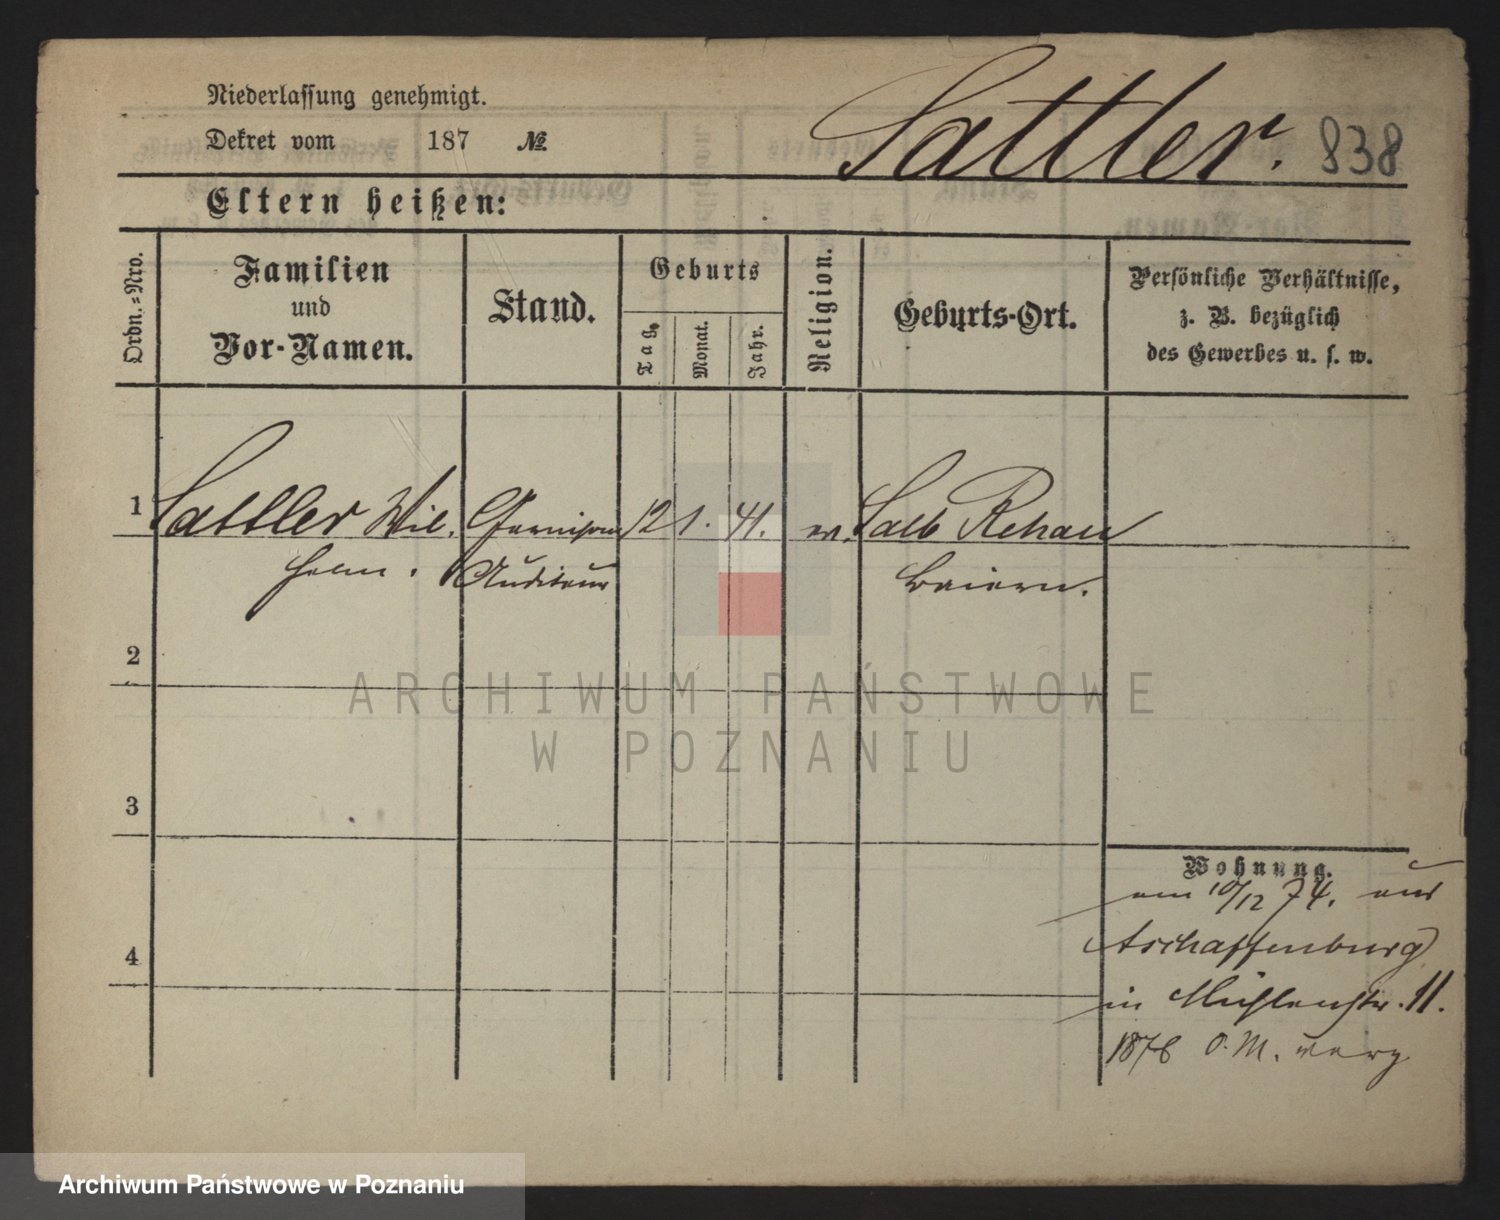 Niederlassung genehmigt.
Dekret vom 187 №
Sattler. 838
Eltern heißen:
Ordn.-Nro.
Familien
und
Vor-Namen.
Stand.
Geburts
Tag.
Monat.
Jahr.
Religion.
Geburts-Ort.
Persönliche Verhältnisse,
z. B. bezüglich
des Gewerbes u. s. w.
1 Sattler Wil. Garnison 12 1. 41. ev. Salb Rehau
helm. Auditeur Baiern.
2
3
4
Wohnung.
am 10/12 74. aus
Aschaffenburg
in Mühlenstr. 11.
1876 O. M. verz
ARCHIWUM PAŃSTWOWE
W POZNANIU
Archiwum Państwowe w Poznaniu